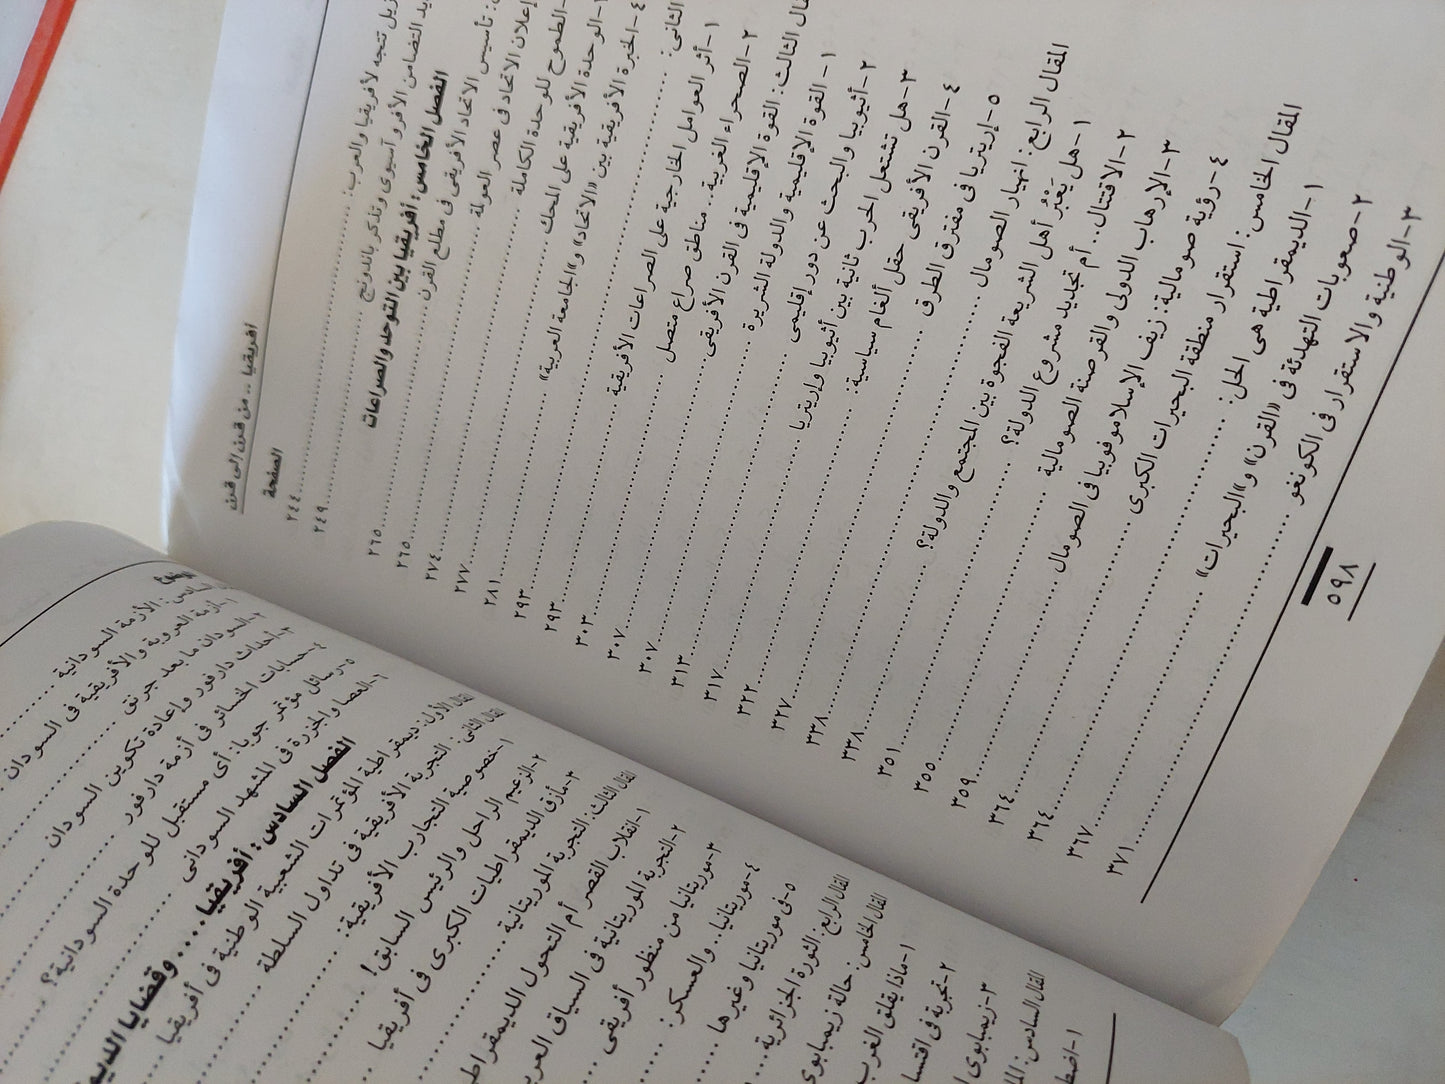 أفريقيا .. من قرن إلى قرن
الصفحة
تتجه لأفريقيا والعرب: ٢٤٤
التضامن الأفروآسيوى وتذكر باندونج ٢٤٩
الفصل الخامس: أفريقيا بين التوحد والصراعات ٢٦٥
تأسيس الاتحاد الأفريقى فى مطلع القرن ٢٦٥
إعلان الاتحاد فى عصر العولمة ٢٧٤
الطموح للوحدة الكاملة ٢٧٧
الوحدة الأفريقية على المحك ٢٨١
٤- الخبرة الأفريقية بين «الاتحاد» و«الجامعة العربية» ٢٩٣
الثانى: ٢٩٣
١- أثر العوامل الخارجية على الصراعات الأفريقية ٣٠٣
٢- الصحراء الغربية.. مناطق صراع متصل ٣٠٧
الثالث: القوة الإقليمية فى القرن الأفريقى ٣٠٧
١- القوة الإقليمية والدولة الشريرة ٣١٣
٢- أثيوبيا والبحث عن دور إقليمى ٣١٧
٣- هل تشتعل الحرب ثانية بين أثيوبيا وإريتريا ٣٢٢
٤- القرن الأفريقى حقل ألغام سياسية: ٣٢٧
٥- إريتريا فى مفترق الطرق ٣٣٨
المقال الرابع: انهيار الصومال ٣٣٨
١- هل يَعْبُر أهل الشريعة الفجوة بين المجتمع والدولة؟ ٣٥١
٢- الاقتتال.. أم تجديد مشروع الدولة؟ ٣٥٥
٣- الإرهاب الدولى والقرصنة الصومالية ٣٥٩
٤- رؤية صومالية: زيف الإسلاموفوبيا فى الصومال ٣٦٤
المقال الخامس: استقرار منطقة البحيرات الكبرى ٣٦٤
١- الديمقراطية هى الحل: ٣٦٧
٢- صعوبات التهدئة فى «القرن» و«البحيرات» ٣٧١
٣- الوطنية والاستقرار فى الكونغو
٥٩٨
السادس: الأزمة السودانية
١- أزمة العروبة والأفريقية فى السودان
٢- السودان ما بعد جرنق
٣- أحداث دارفور وإعادة تكوين السودان
٤- حسابات الخسائر فى أزمة دارفور
٥- رسائل مؤتمر جوبا: أى مستقبل للوحدة السودانية؟
٦- العصا والجزرة فى المشهد السودانى
الفصل السادس: أفريقيا .... وقضايا
المقال الأول: ديمقراطية المؤتمرات الشعبية الوطنية فى أفريقيا
المقال الثانى: التجربة الأفريقية فى تداول السلطة
١- خصوصية التجارب الأفريقية:
٢- الزعيم الراحل والرئيس السابق!
٣- مأزق الديمقراطيات الكبرى فى أفريقيا
المقال الثالث: التجربة الموريتانية
١- انقلاب القصر أم التحول
٢- التجربة الموريتانية فى السياق
٣- موريتانيا من منظور أفريقى
٤- موريتانيا.. والعسكر:
٥- فى موريتانيا وغيرها
المقال الرابع: الثورة الجزائرية
المقال الخامس: حالة زيمبابوى
١- ماذا يقلق الغرب
٢- تجربة فى
٣- زيمبابوى
المقال السادس: